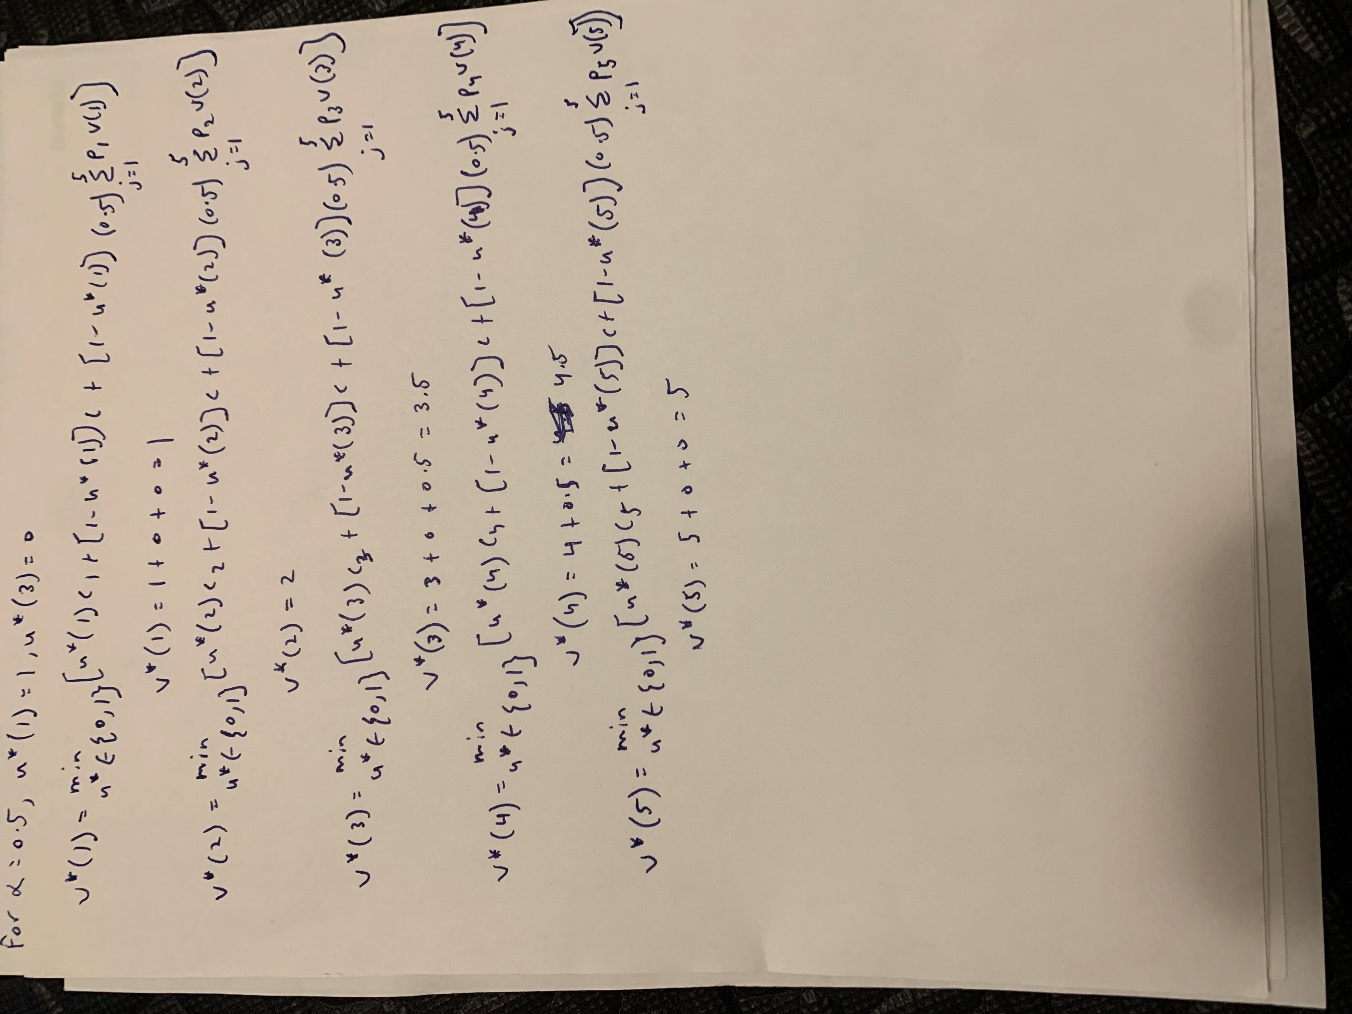 For α = 0.5, u*(1) = 1, u*(3) = 0
v*(1) = min u*∈{0,1} [u*(1)c1 + [1-u*(1)]c + [1-u*(1)](0.5) 5 Σ j=1 P1 v(1)]
v*(1) = 1 + 0 + 0 = 1
v*(2) = min u*∈{0,1} [u*(2)c2 + [1-u*(2)]c + [1-u*(2)](0.5) 5 Σ j=1 P2 v(2)]
v*(2) = 2
v*(3) = min u*∈{0,1} [u*(3)c3 + [1-u*(3)]c + [1-u*(3)](0.5) 5 Σ j=1 P3 v(3)]
v*(3) = 3 + 0 + 0.5 = 3.5
v*(4) = min u*∈{0,1} [u*(4)c4 + [1-u*(4)]c + [1-u*(4)](0.5) 5 Σ j=1 P4 v(4)]
v*(4) = 4 + 0.5 = 4.5
v*(5) = min u*∈{0,1} [u*(5)c5 + [1-u*(5)]c + [1-u*(5)](0.5) 5 Σ j=1 P5 v(5)]
v*(5) = 5 + 0 + 0 = 5